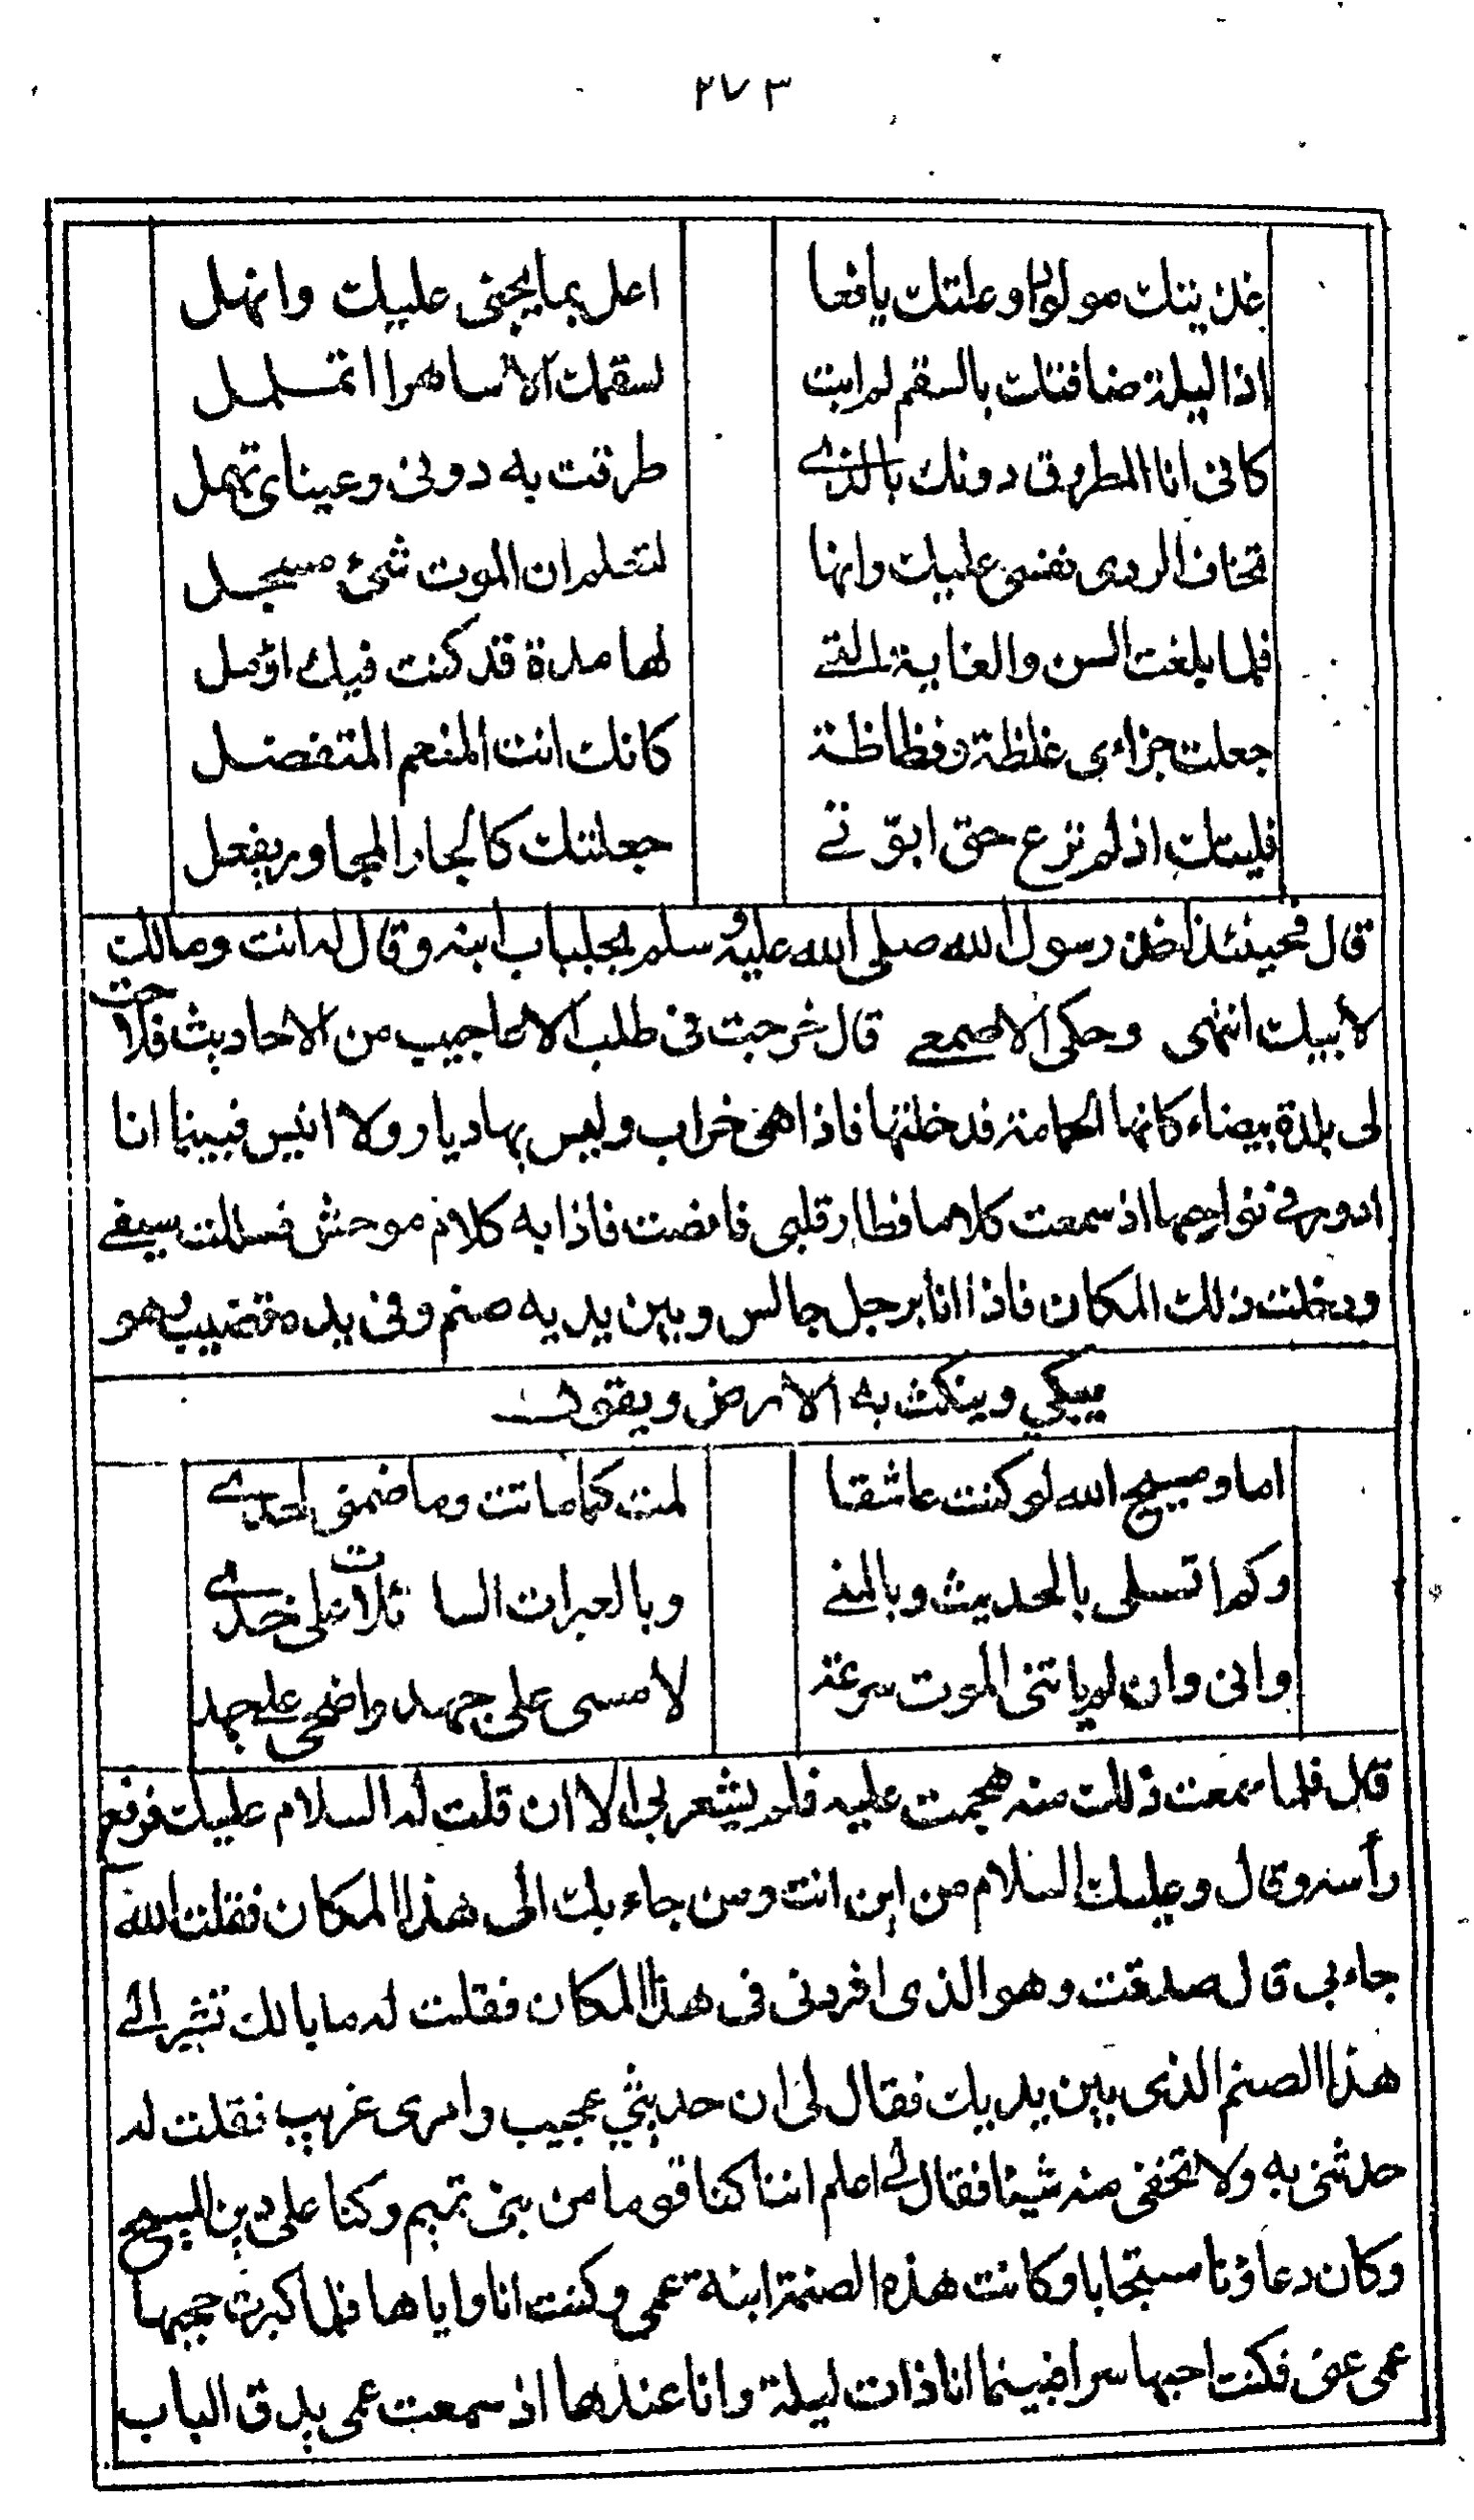 ٢٧٣
غذيتك مولودا وعلتك يافعا اعل بما يجنى عليك وانهل
اذا ليلة ضافتك بالسقم لم ابت لسقمك الا ساهرا اتململ
كانى انا المطروق دونك بالذى طرقت به دونى وعيناى تهمل
تخاف الردى نفسى عليك وانها لتعلم ان الموت شئ مسجل
فلما بلغت السن والغاية التى لها مدة قد كنت فيك اؤمل
جعلت جزاءى غلظة وفظاظة كانك انت المنعم المتفضل
فليتك اذ لم ترع حق ابوّتى جعلتك كالجار المجاور يفعل
قال فحينئذ اخذ رسول الله صلى الله عليه وسلم بجلباب ابنه وقال له انت ومالك
لابيك انتهى وحكى الاصمعى قال خرجت فى طلب الاعاجيب من الاحاديث فلاحت
لى بلدة بيضاء كانها الحمامة فدخلتها فاذا هى خراب وليس بها ديار ولا انيس فبينا انا
ادور فى نواحيها اذ سمعت كلاما فطار قلبى فانصت فاذا به كلام موحش فسللت سيفى
ودخلت ذلك المكان فاذا انا برجل جالس وبين يديه صنم وفى يده قضيب وهو
يبكى وينكث به الارض ويقول
اما ومسيح الله لو كنت عاشقا لمت كما ماتت وما ضمنى لحدى
وكم اتسلى بالحديث وبالمنى وبالعبرات السائلات على خدى
وانى وان لم ياتنى الموت سرعة لامسى على جهد واضحى على جهد
قال فلما سمعت ذلك منه هجمت عليه فلم يشعر بى الا ان قلت له السلام عليك فرفع
رأسه وقال وعليك السلام من اين انت ومن جاء بك الى هذا المكان فقلت الله
جاء بى قال صدقت وهو الذى افردنى فى هذا المكان فقلت له ما بالك تشير الى
هذا الصنم الذى بين يديك فقال لى ان حديثى عجيب وامرى غريب فقلت له
حدثنى به ولا تخفى منه شيئا فقال لى اعلم اننا كنا قوما من بنى تميم وكنا على دين المسيح
وكان دعاؤنا مستجابا وكانت هذه الصنمة ابنة عمى وكنت انا واياها فلما كبرت حجبها
عمى عنى فكنت احبها سرا فبينما انا ذات ليلة وانا عندها اذ سمعت عمى يدق الباب